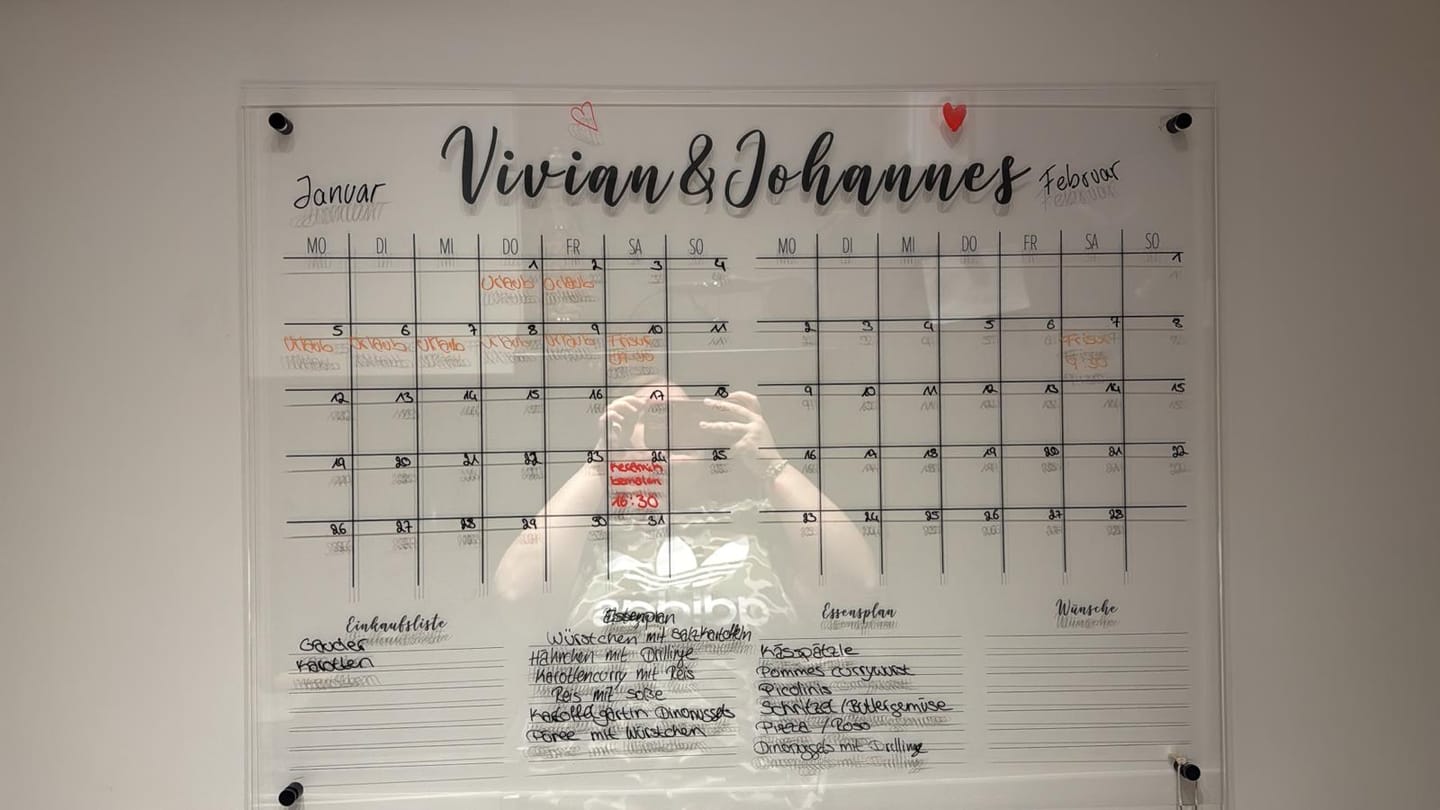 Vivian & Johannes
Januar
Februar
MO DI MI DO FR SA SO
1 2 3 4
Urlaub Urlaub
5 6 7 8 9 10 11
Urlaub Urlaub Urlaub Urlaub Urlaub Frisur
12 13 14 15 16 17 18
19 20 21 22 23 24 25
Keramik
bemalen
16:30
26 27 28 29 30 31
MO DI MI DO FR SA SO
1
2 3 4 5 6 7 8
Frisur
9:30
9 10 11 12 13 14 15
16 17 18 19 20 21 22
23 24 25 26 27 28
Einkaufsliste
Gauder
Karotten
Essensplan
Würstchen mit Salzkartoffeln
Hähnchen mit Drillinge
Karottencurry mit Reis
Reis mit Soße
Kartoffelgratin Dinonuggets
Püree mit Würstchen
Essensplan
Kässpätzle
Pommes Currywurst
Picolinis
Schnitzel / Buttergemüse
Pizza / Roso
Dinonuggets mit Drillinge
Wünsche
adidas